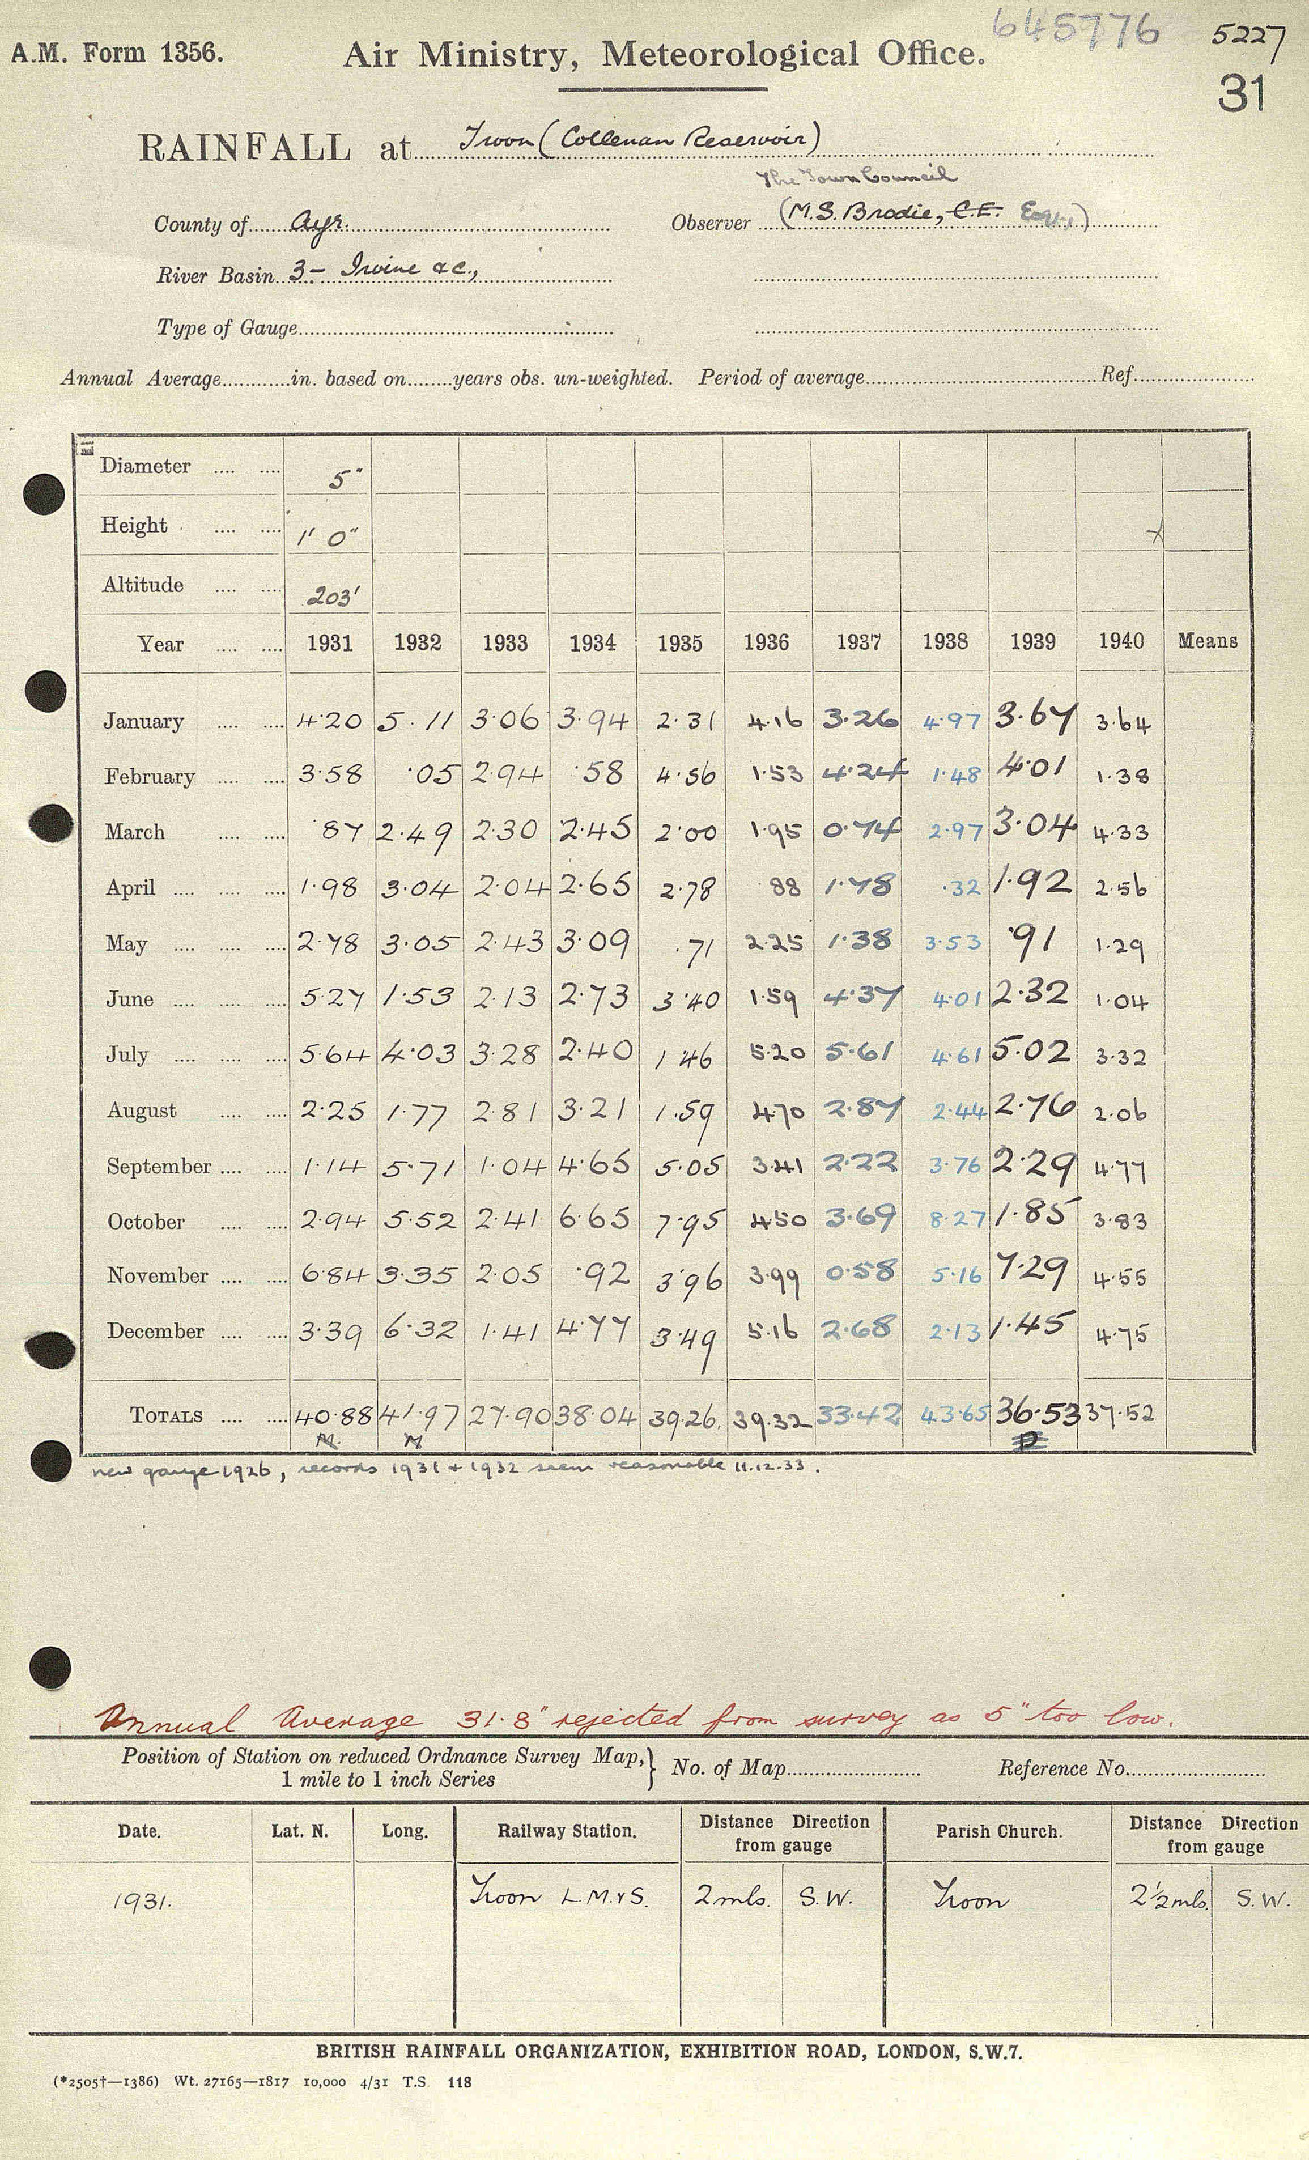 645776 5227
A.M. Form 1356. Air Ministry, Meteorological Office. 31
RAINFALL at Troon (Collenan Reservoir)
The Town Council
County of Ayr. Observer (M.S. Brodie, C.E. Esq.,)
River Basin 3- Irvine &c.,
Type of Gauge
Annual Average in. based on years obs. un-weighted. Period of average Ref.
Diameter 5"
Height 1' 0"
Altitude 203'
Year 1931 1932 1933 1934 1935 1936 1937 1938 1939 1940 Means
January 4.20 5.11 3.06 3.94 2.31 4.16 3.26 4.97 3.67 3.64
February 3.58 .05 2.94 .58 4.56 1.53 4.24 1.48 4.01 1.38
March .87 2.49 2.30 2.45 2.00 1.95 0.74 2.97 3.04 4.33
April 1.98 3.04 2.04 2.65 2.78 88 1.78 .32 1.92 2.56
May 2.78 3.05 2.43 3.09 .71 2.25 1.38 3.53 .91 1.29
June 5.27 1.53 2.13 2.73 3.40 1.59 4.37 4.01 2.32 1.04
July 5.64 4.03 3.28 2.40 1.46 5.20 5.61 4.61 5.02 3.32
August 2.25 1.77 2.81 3.21 1.59 4.70 2.87 2.44 2.76 2.06
September 1.14 5.71 1.04 4.65 5.05 3.41 2.22 3.76 2.29 4.77
October 2.94 5.52 2.41 6.65 7.95 4.50 3.69 8.27 1.85 3.83
November 6.84 3.35 2.05 .92 3.96 3.99 0.58 5.16 7.29 4.55
December 3.39 6.32 1.41 4.77 3.49 5.16 2.68 2.13 1.45 4.75
TOTALS 40.88 41.97 27.90 38.04 39.26 39.32 33.42 43.65 36.53 37.52
M. M
new gauge 1926, records 1931 + 1932 seem reasonable 11.12.33.
Annual Average 31.8" rejected from survey as 5" too low.
Position of Station on reduced Ordnance Survey Map, } No. of Map Reference No.
1 mile to 1 inch Series
Date. Lat. N. Long. Railway Station. Distance Direction from gauge Parish Church. Distance Direction from gauge
1931. Troon L.M.&S. 2 mls. S.W. Troon 2½ mls. S.W.
BRITISH RAINFALL ORGANIZATION, EXHIBITION ROAD, LONDON, S.W.7.
(*2505†—1386) Wt. 27165—1817 10,000 4/31 T.S. 118